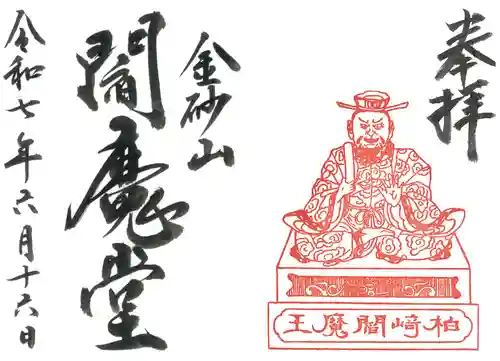 奉拝
柏崎閻魔王
金砂山
閻魔堂
令和七年六月十六日